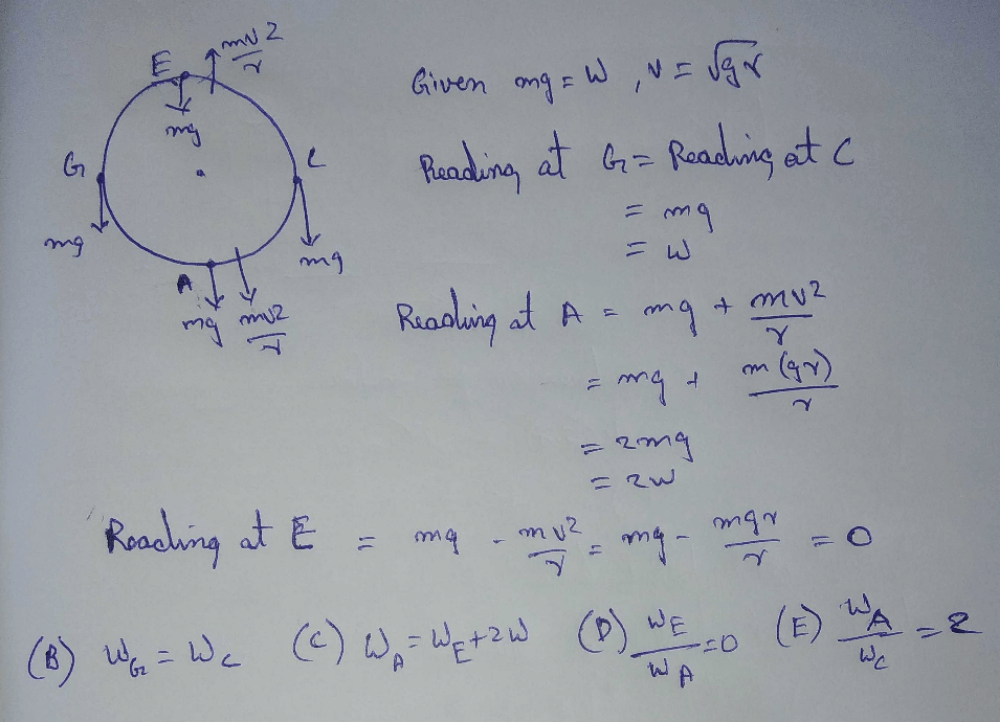 E mv²/r
mg
G C
mg mg
A
mg mv²/r
Given mg = W , v = √gr
Reading at G = Reading at C
= mg
= W
Reading at A = mg + mv²/r
= mg + m(gr)/r
= 2mg
= 2W
Reading at E = mg - mv²/r = mg - mgr/r = 0
(B) W_G = W_C (C) W_A = W_E + 2W (D) W_E/W_A = 0 (E) W_A/W_C = 2